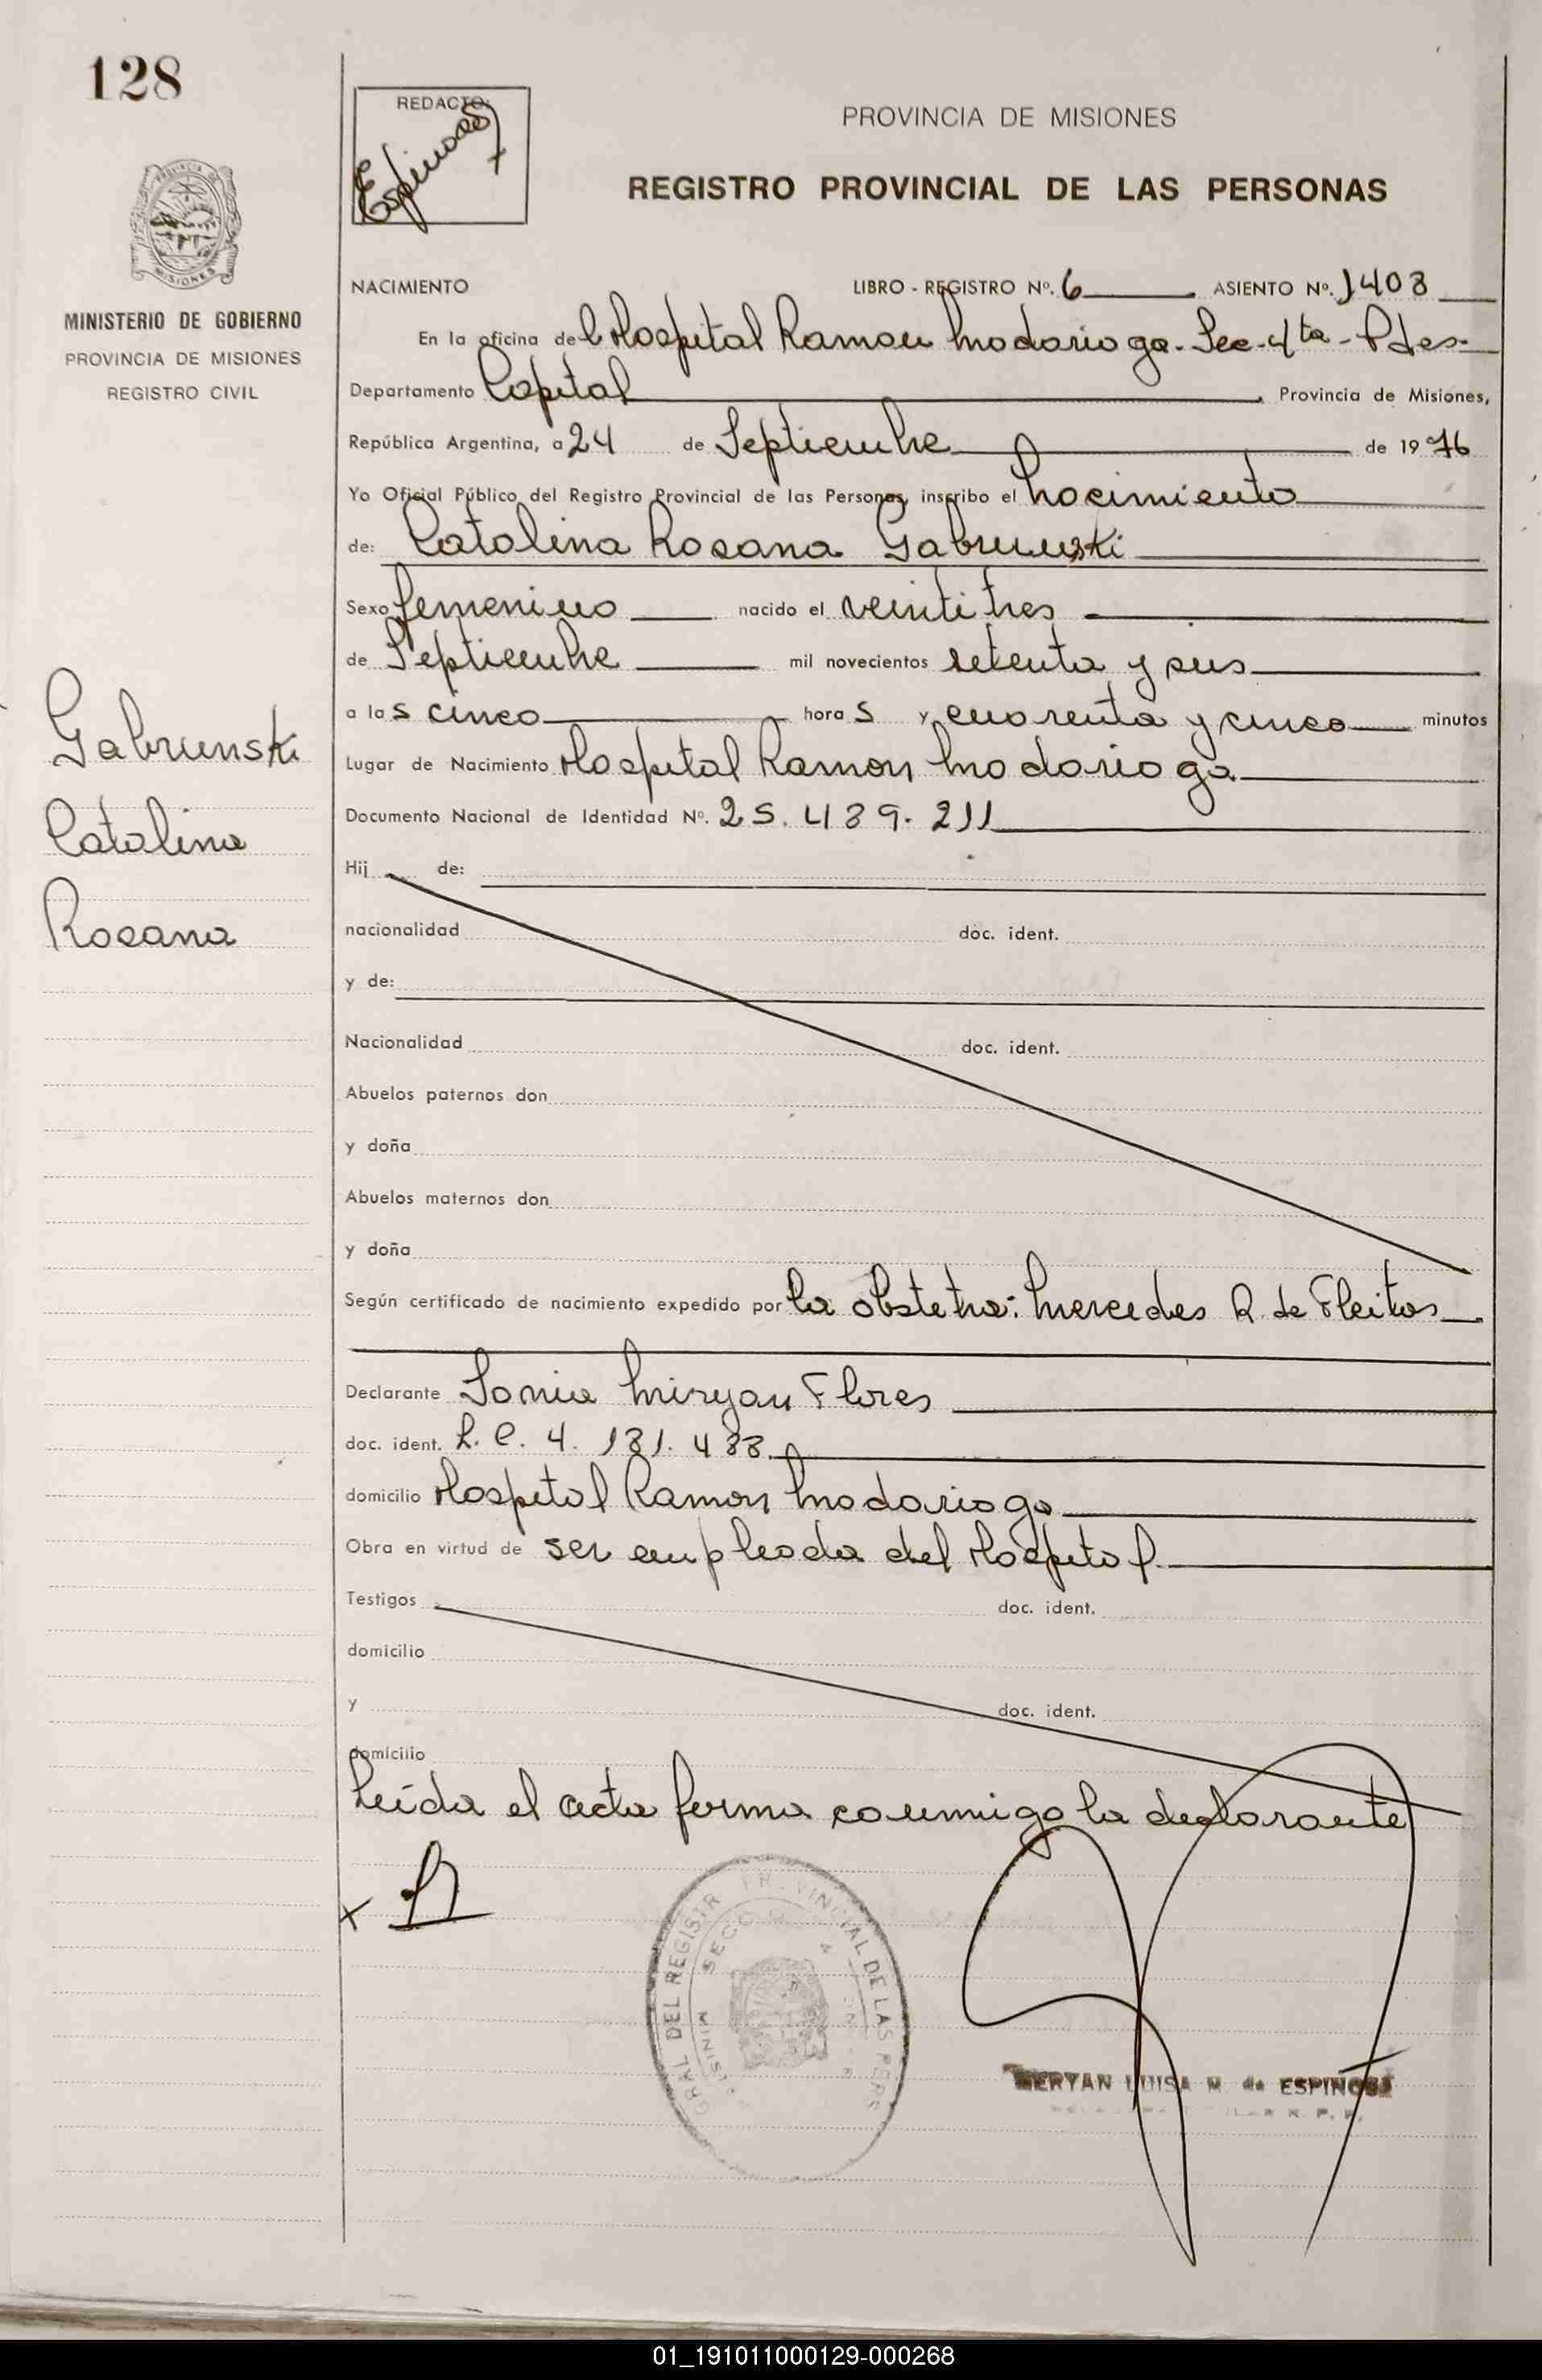 128
REDACTO:
Espinosa
PROVINCIA DE MISIONES
REGISTRO PROVINCIAL DE LAS PERSONAS
MISIONES
MINISTERIO DE GOBIERNO
PROVINCIA DE MISIONES
REGISTRO CIVIL
NACIMIENTO LIBRO - REGISTRO Nº. 6 ASIENTO Nº. 1408
En la oficina del Hospital Ramon Madariaga - Sec. 4ta - Pdas.
Departamento Capital Provincia de Misiones,
República Argentina, a 24 de Septiembre de 1976
Yo Oficial Público del Registro Provincial de las Personas, inscribo el nacimiento
de: Catalina Rosana Gabrunski
Sexo femenino nacido el veintitres
de Septiembre mil novecientos setenta y seis
a las cinco horas y cuarenta y cinco minutos
Lugar de Nacimiento Hospital Ramon Madariaga
Documento Nacional de Identidad Nº. 25.439.211
Gabrunski
Catalina
Rosana
Hij de:
nacionalidad doc. ident.
y de:
Nacionalidad doc. ident.
Abuelos paternos don
y doña
Abuelos maternos don
y doña
Según certificado de nacimiento expedido por la obstetra: Mercedes R. de Fleitas
Declarante Sonia Miryan Flores
doc. ident. L.C. 4.181.488
domicilio Hospital Ramon Madariaga
Obra en virtud de ser empleada del Hospital
Testigos doc. ident.
domicilio
y doc. ident.
domicilio
Leída el acta firma conmigo la declarante
x
GRAL DEL REGISTR PROVINCIAL DE LAS PERS
MERYAN LUISA M. de ESPINOSA
01_191011000129-000268